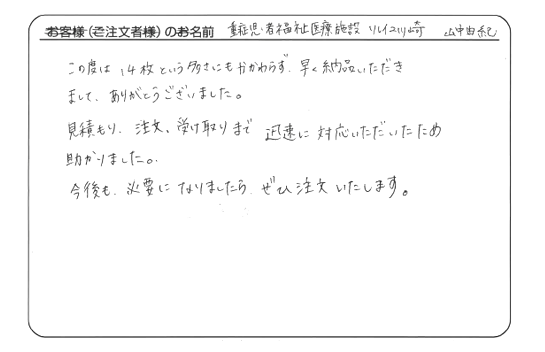 お客様（ご注文者様）のお名前 重症児・者福祉医療施設 ソレイユ川崎 山中由紀
この度は 14枚という多さにもかかわらず、早く納品いただき
まして、ありがとうございました。
見積もり、注文、受け取りまで 迅速に対応いただいたため
助かりました。
今後も、必要になりましたら、ぜひ注文いたします。